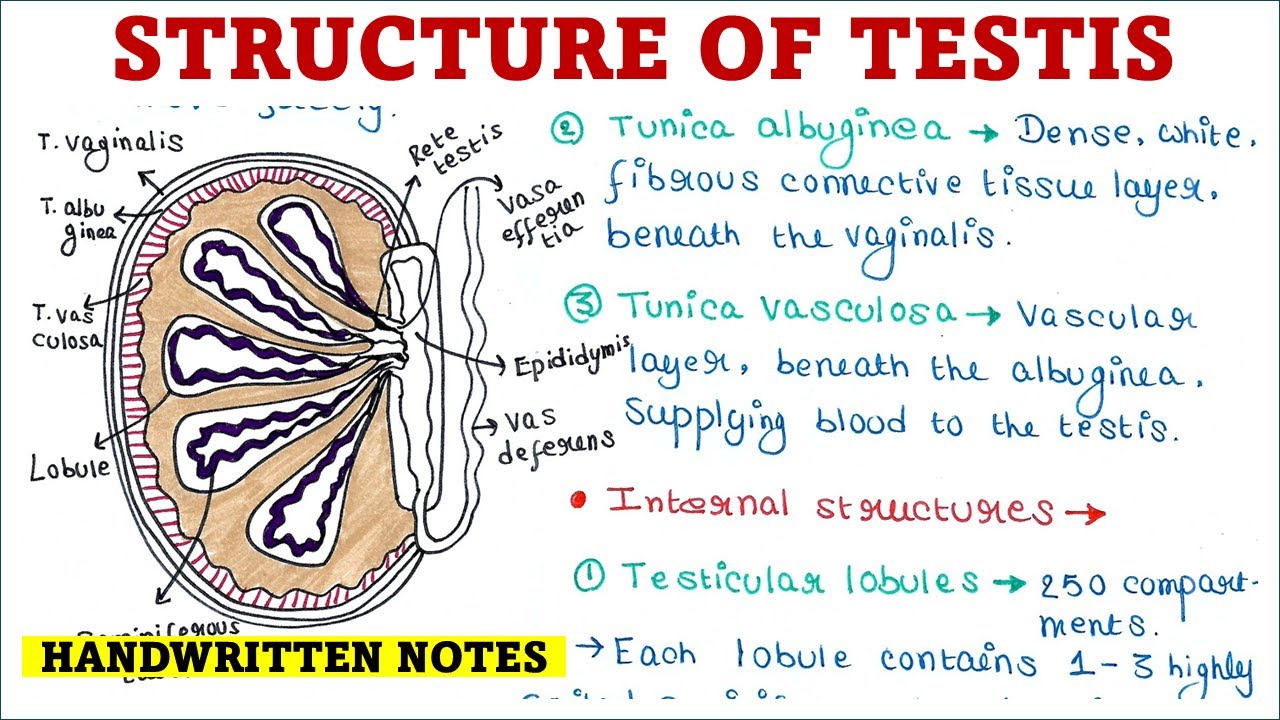 STRUCTURE OF TESTIS
T. vaginalis
T. albu
ginea
T. vas
culosa
Lobule
HANDWRITTEN NOTES
Rete
testis
Vasa
efferen
tia
Epididymis
Vas
deferens
② Tunica albuginea → Dense, white,
fibrous connective tissue layer,
beneath the vaginalis.
③ Tunica vasculosa → Vascular
layer, beneath the albuginea,
supplying blood to the testis.
• Internal structures →
① Testicular lobules → 250 compart-
ments.
→ Each lobule contains 1-3 highly